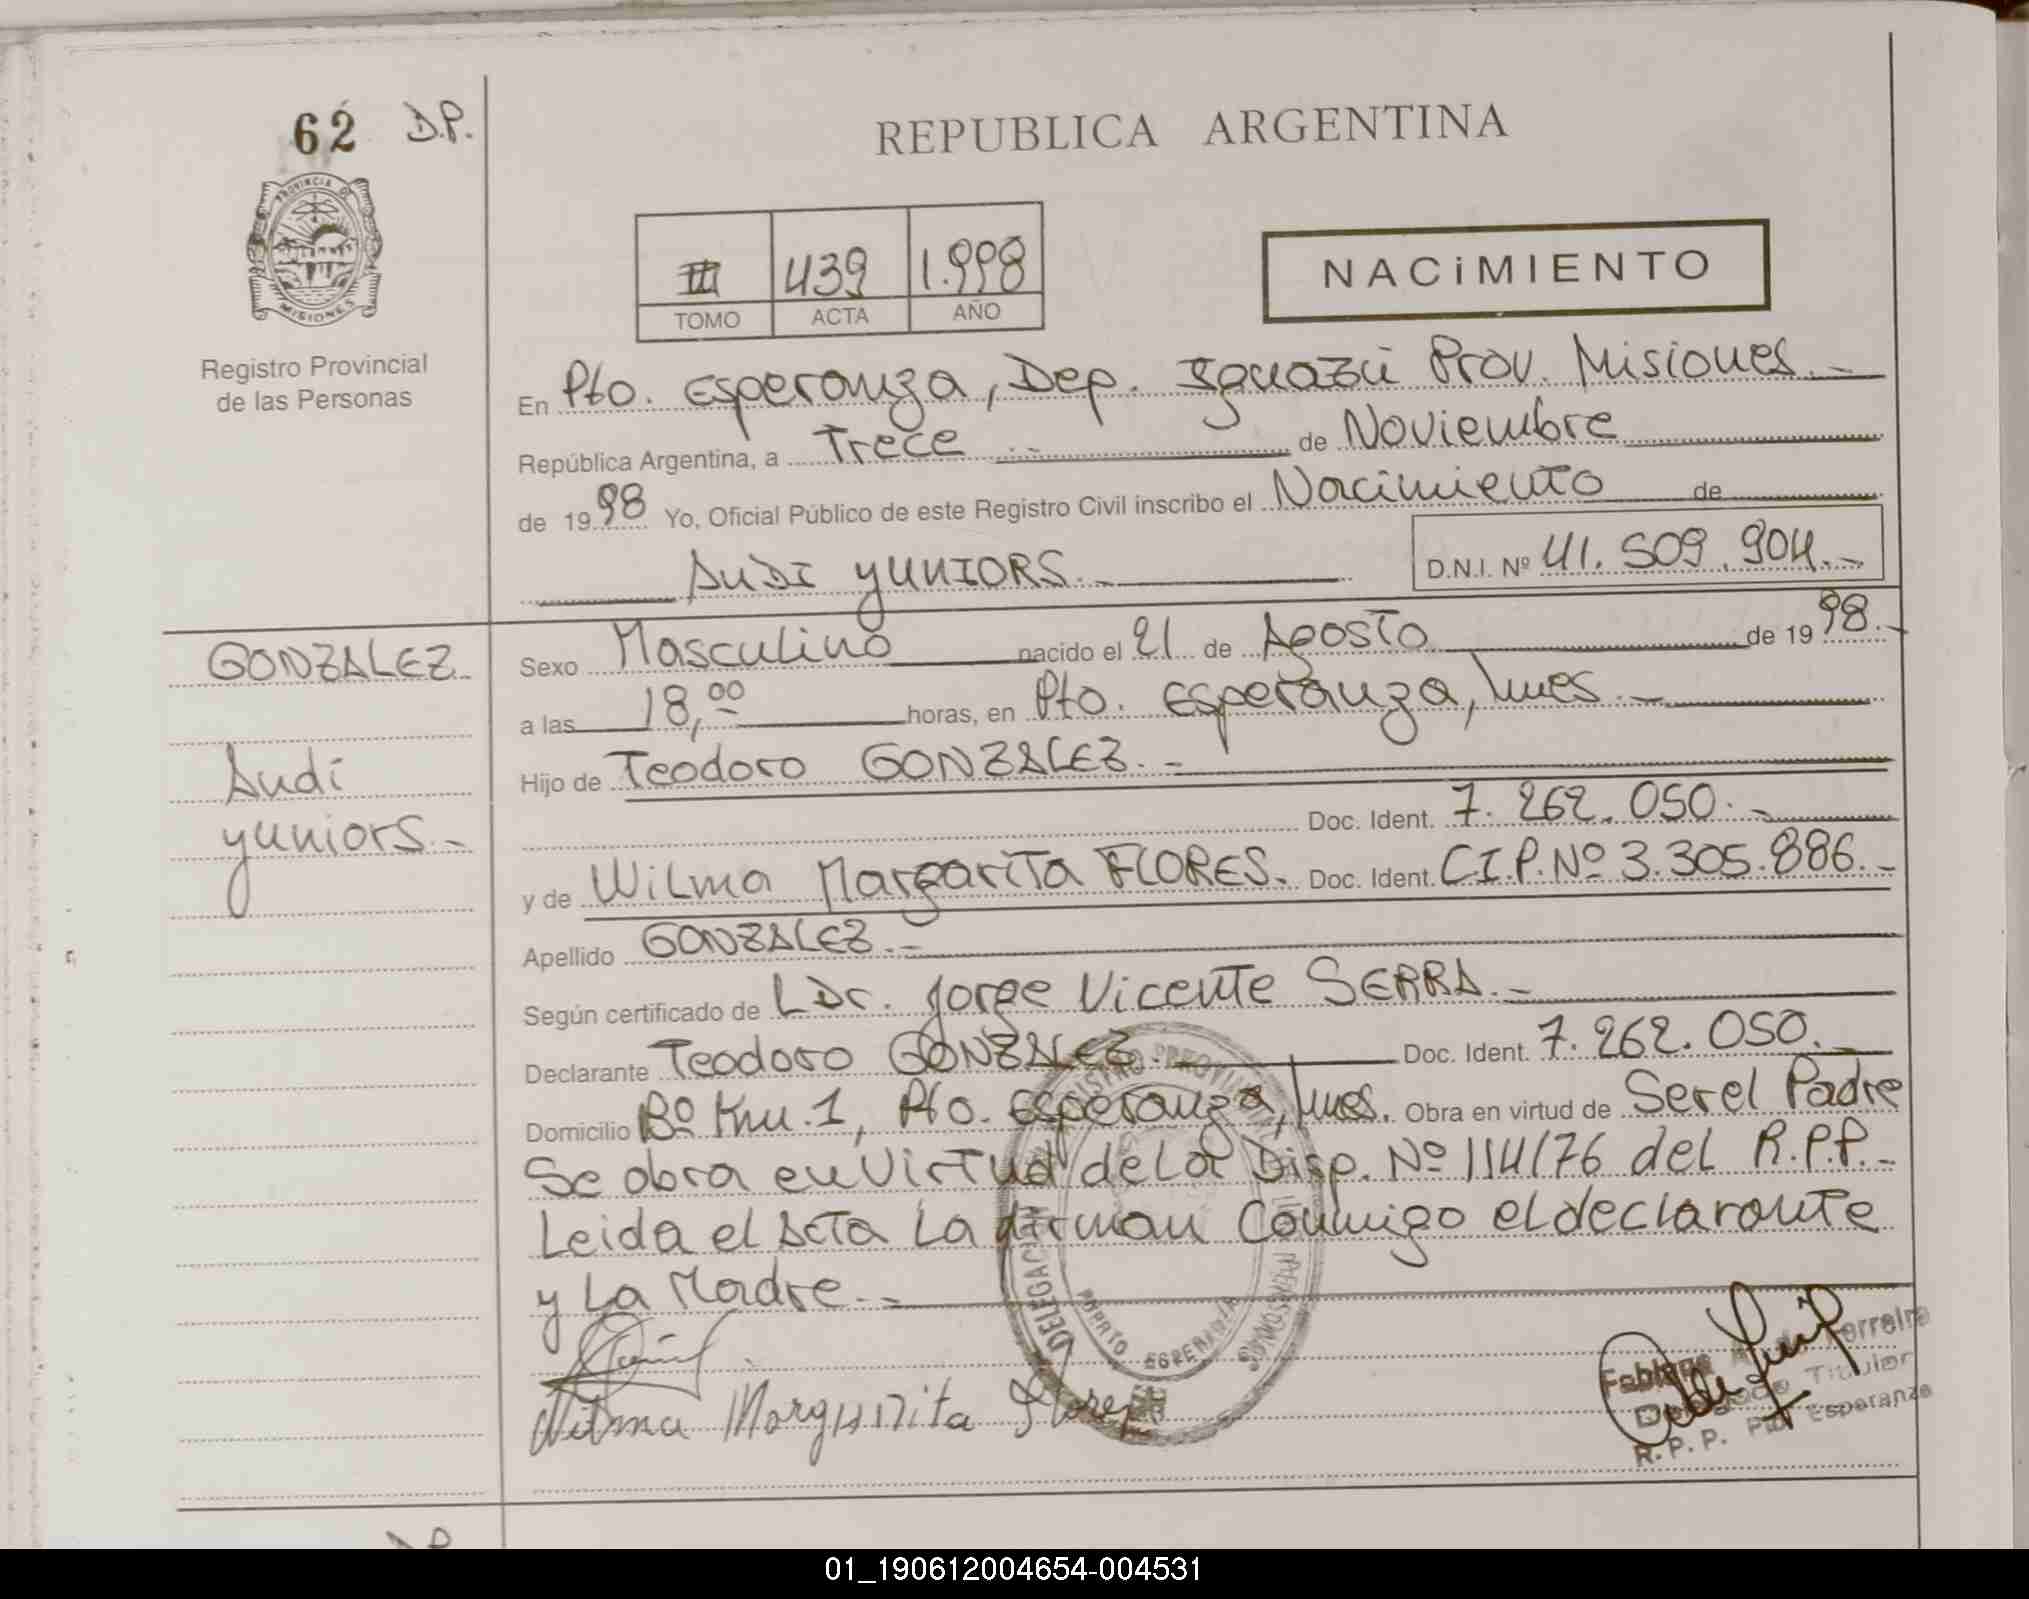 62 D.P.
PROVINCIA DE
MISIONES
Registro Provincial
de las Personas
REPUBLICA ARGENTINA
III 439 1.998
TOMO ACTA AÑO
NACiMIENTO
En Pto. Esperanza, Dep. Iguazú Prov. Misiones.-
República Argentina, a Trece de Noviembre
de 1998 Yo, Oficial Público de este Registro Civil inscribo el Nacimiento de
AUDI YUNIORS.- D.N.I. Nº 41.509.904.-
GONZALEZ
Audi
yuniors.-
Sexo Masculino nacido el 21 de Agosto de 1998.-
a las 18,00 horas, en Pto. Esperanza, Mnes.-
Hijo de Teodoro GONZALEZ.-
Doc. Ident. 7.262.050.-
y de Wilma Margarita FLORES. Doc. Ident. C.I.P.Nº 3.305.886.-
Apellido GONZALEZ.-
Según certificado de L Dr. Jorge Vicente SERRA.-
Declarante Teodoro GONZALEZ. Doc. Ident. 7.262.050.-
Domicilio Bº Km.1, Pto. Esperanza, Mnes. Obra en virtud de Ser el Padre
Se obra en Virtud de La Disp. Nº 114/76 del R.P.P.-
Leida el Acta La firman Conmigo el declarante
y La Madre.-
DELEGACION
PUERTO ESPERANZA
Wilma Margarita Flores
Ferreira
Delegado Titular
R.P.P. Pto. Esperanza
D.P.
01_190612004654-004531